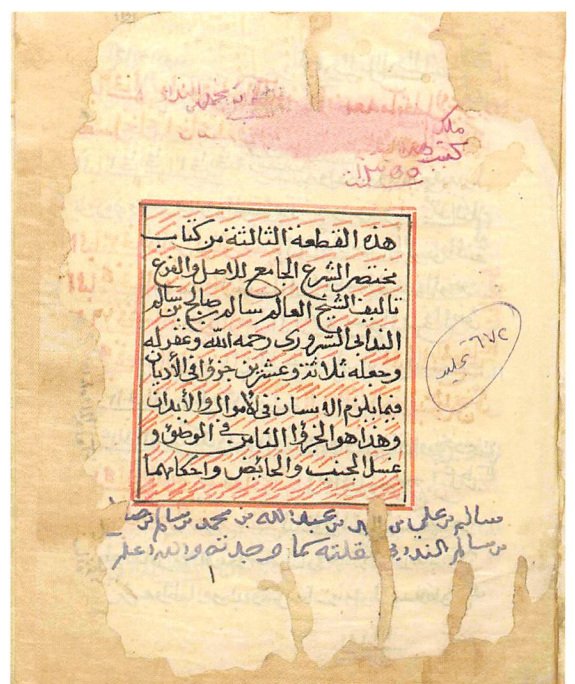 ملك
كتب
١٣٥٥
سنة
هذه القطعة الثالثة من كتاب
مختصر الشرع الجامع للاصل والفرع
تاليف الشيخ العالم سالم بن صالح بن سالم
الندابي السروري رحمه الله وغفر له
وجعله ثلاثة وعشرين جزؤا في الأديان
فيما يلزم الانسان في الأموال والأبدان
وهذا هو الجزؤ الثامن في الوضؤ و
غسل الجنب والحائض واحكامهما
٦٧٢
سالم بن علي بن بن عبدالله بن محمد بن سالم بن
بن سالم الندابي نقلته كما وجدته والله اعلم
١